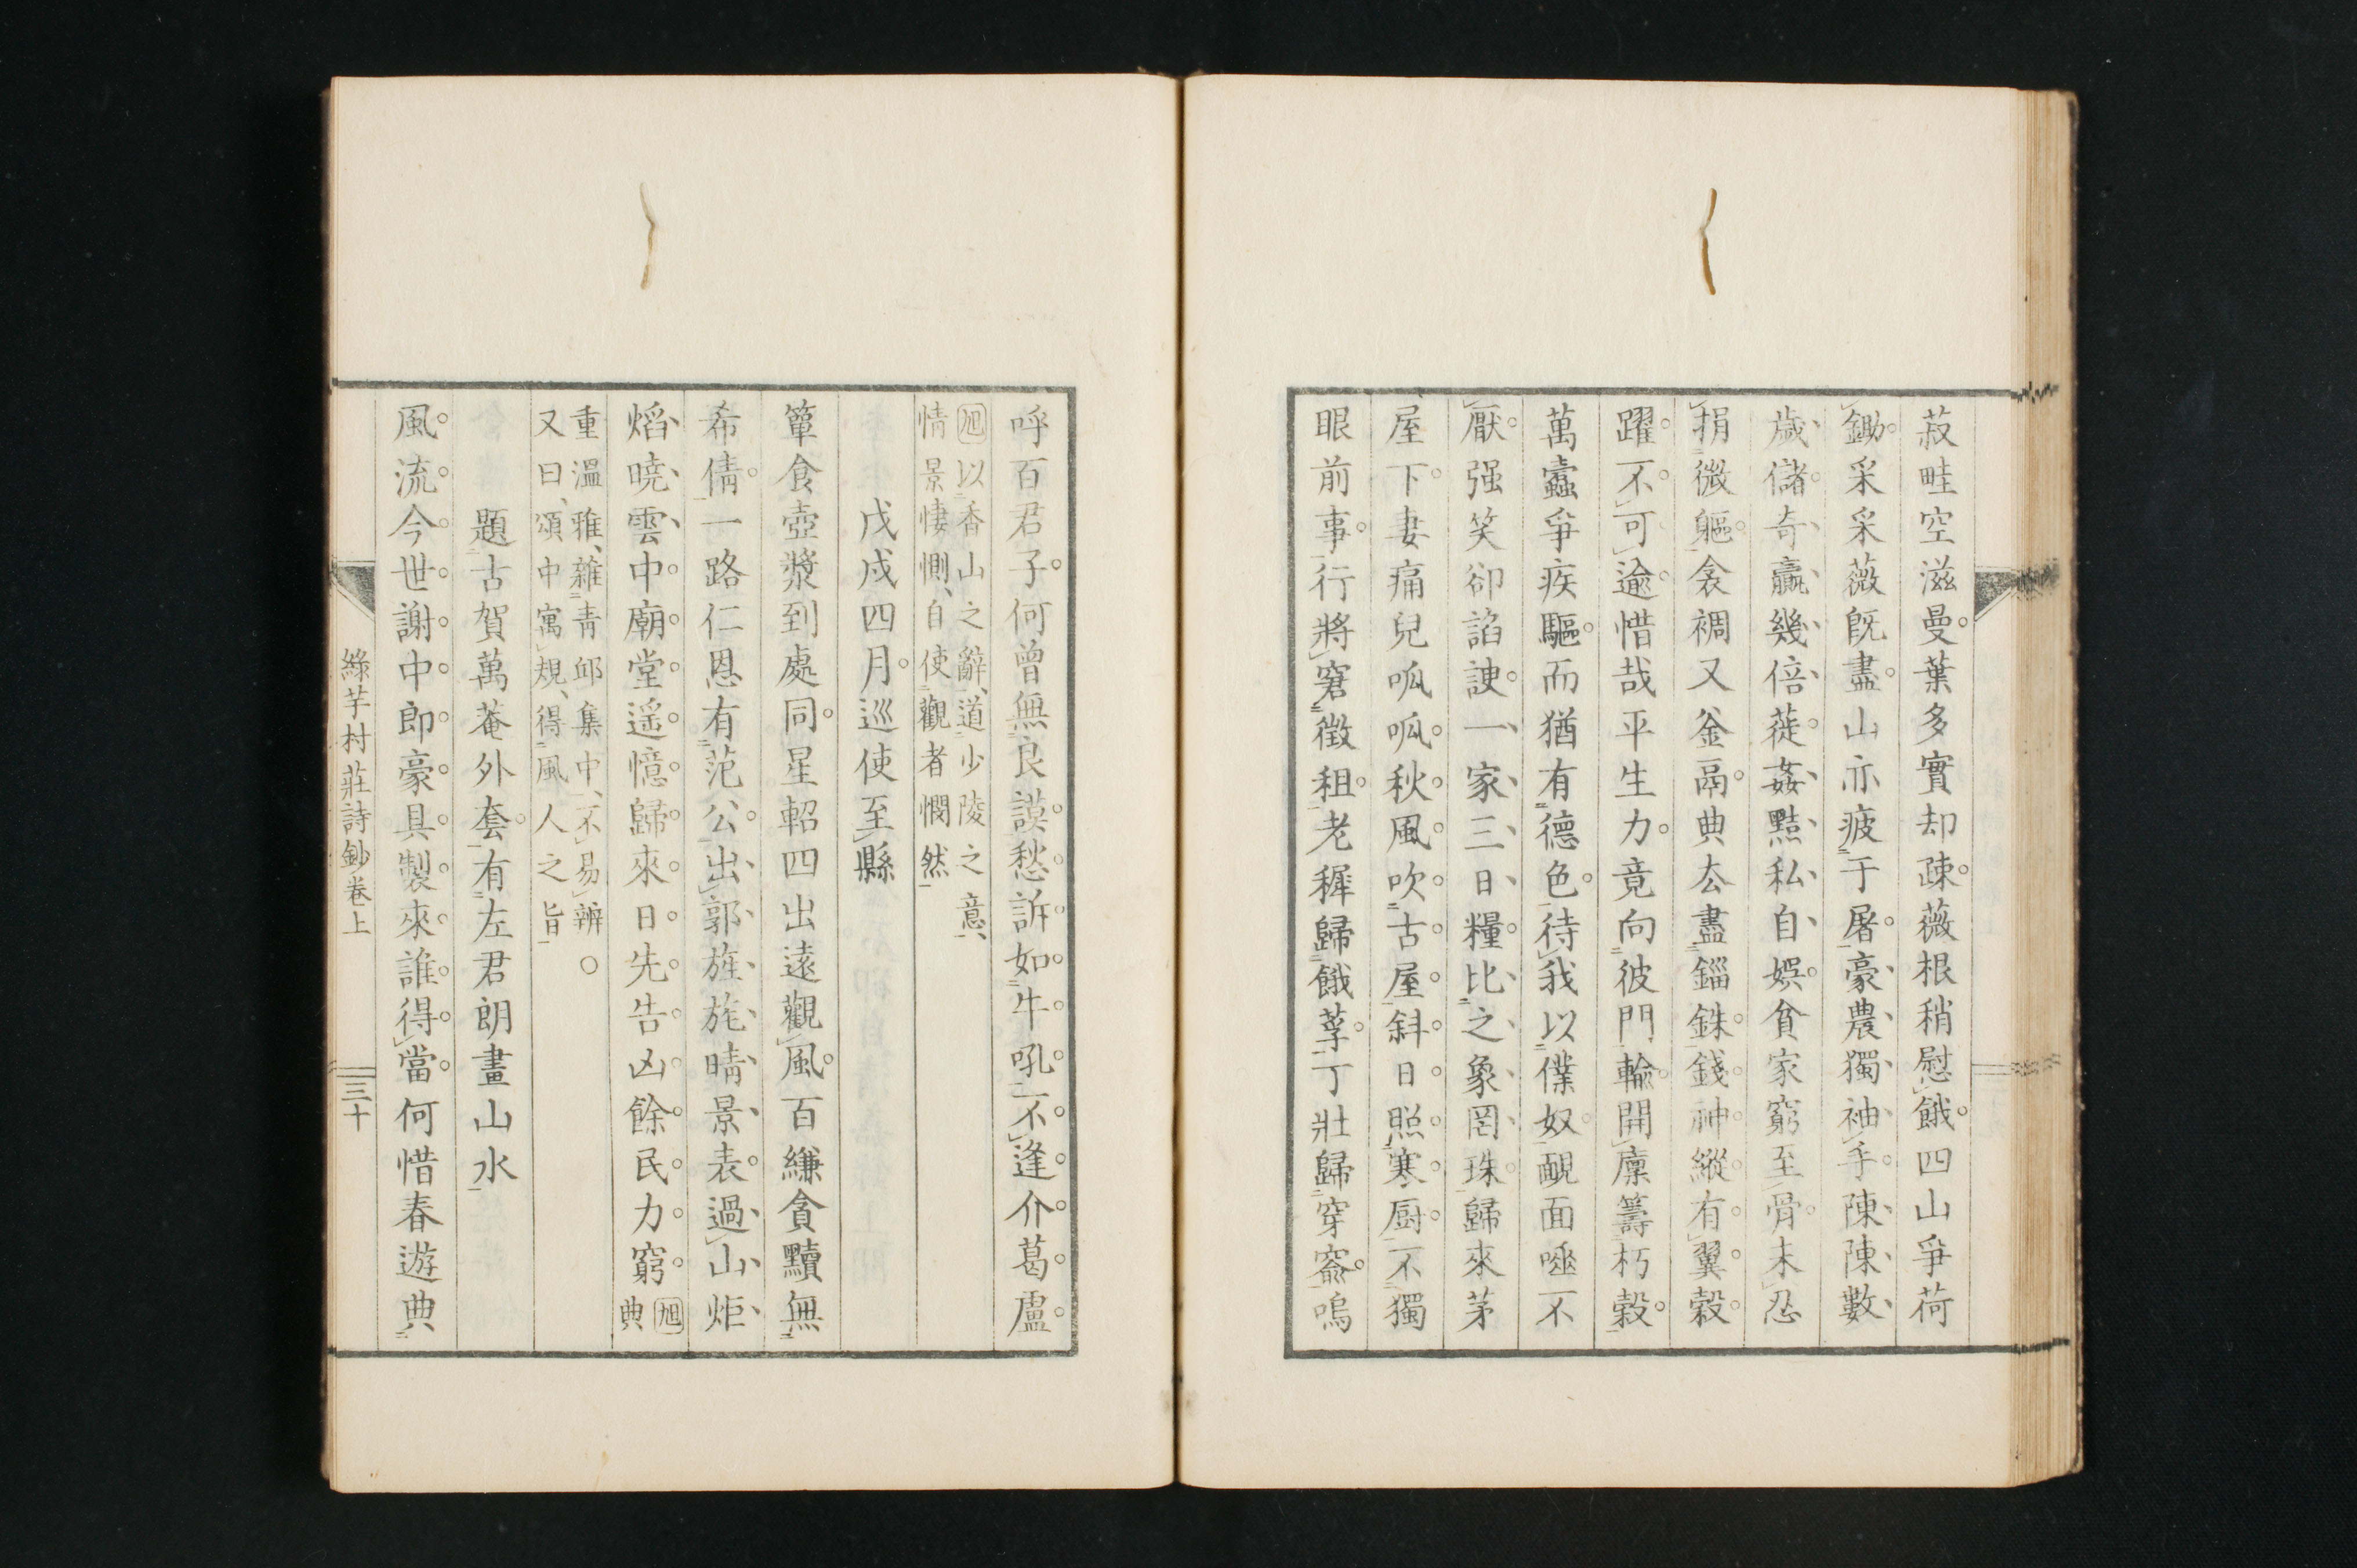 菽畦空滋曼葉多實却疎薇根稍慰餓四山爭荷
鋤采采薇既盡山亦疲于屠豪農獨袖手陳陳數
歲儲奇贏幾倍蓰姦黠私自娛貧家窮至骨未忍
捐微軀衾裯又釜鬲典去盡錙銖錢神縱有翼穀
躍不可逾惜哉平生力竟向彼門輸開廩籌朽穀
萬蠹爭疾驅而猶有德色待我以僕奴靦面唾不
厭强笑卻諂諛一家三日糧比之象罔珠歸來茅
屋下妻痛兒呱呱秋風吹古屋斜日照寒厨不獨
眼前事行將窘徵租老穉歸餓莩丁壯歸穿窬嗚
呼百君子何曾無良謨愁訴如牛吼不逢介葛盧
旭以香山之辭、道少陵之意、
情景悽惻、自使觀者憫然
戊戌四月巡使至縣
簞食壺漿到處同星軺四出遠觀風百縑貪黷無
希倩一路仁恩有范公出郭旌旄晴景表過山炬
熖曉雲中廟堂遥憶歸來日先告凶餘民力窮旭典
重溫雅、雜青邱集中、不易辨○
又曰、頌中寓規、得風人之旨
題古賀萬菴外套有左君朗畫山水
風流今世謝中郎豪具製來誰得當何惜春遊典
綠芋村莊詩鈔卷上
三十